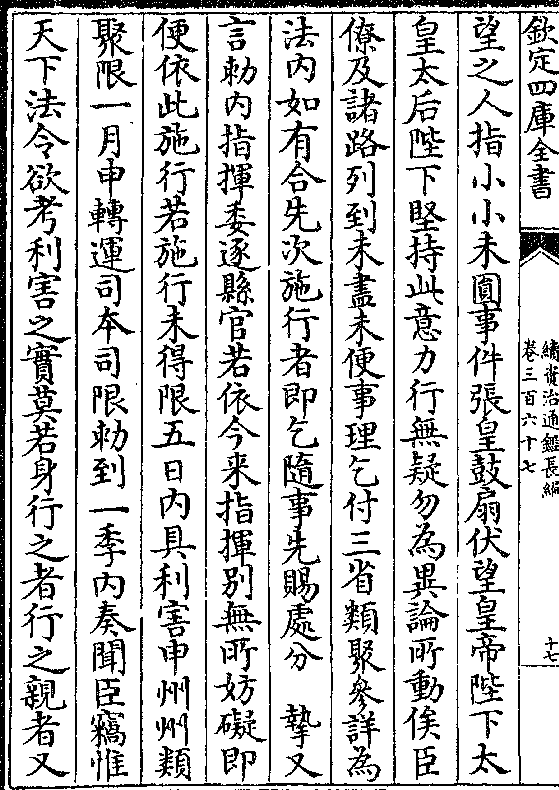 欽定四庫全書
續資治通鑑長編
卷三百六十七
十七
望之人指小小未圓事件張皇鼓扇伏望皇帝陛下太
皇太后陛下堅持此意力行無疑勿為異論所動俟臣
僚及諸路列到未盡未便事理乞付三省類聚參詳為
法内如有合先次施行者即乞隨事先賜處分 摯又
言勅内指揮委逐縣官若依今来指揮别無所妨礙即
便依此施行若施行未得限五日内具利害申州州類
聚限一月申轉運司本司限勅到一季内奏聞臣竊惟
天下法令欲考利害之實莫若身行之者行之親者又